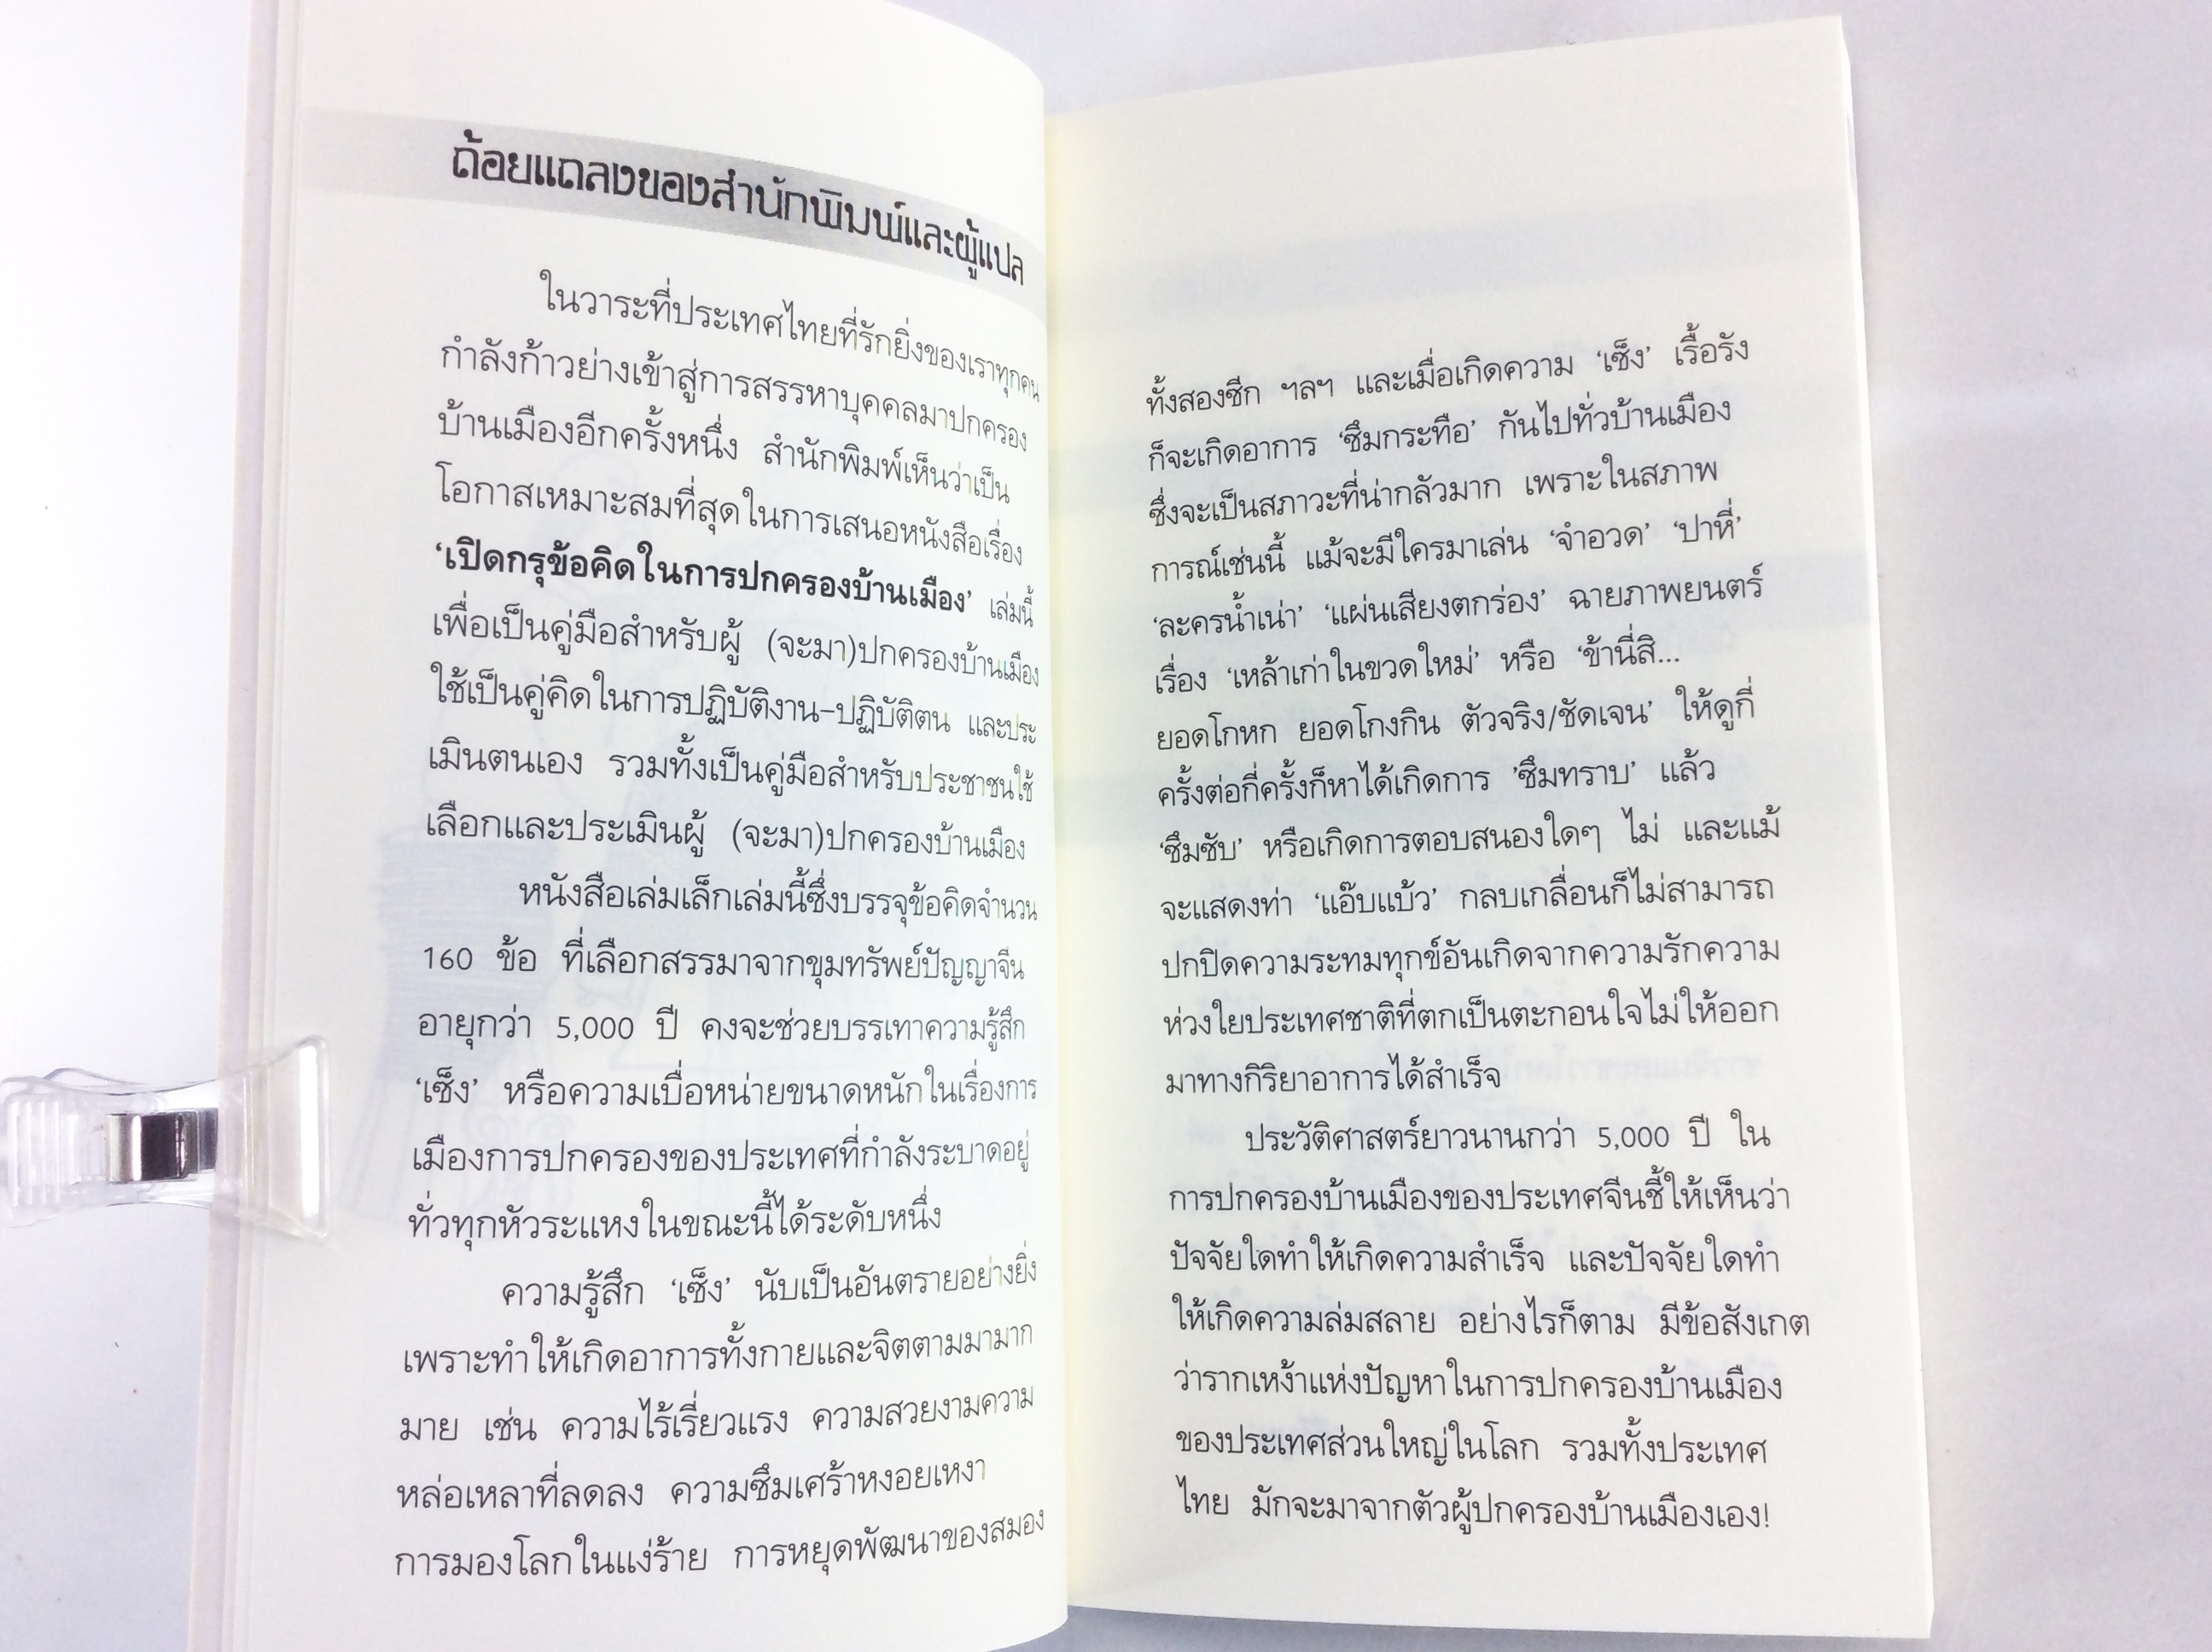 ถ้อยแถลงของสำนักพิมพ์และผู้แปล
ในวาระที่ประเทศไทยที่รักยิ่งของเราทุกคน
กำลังก้าวย่างเข้าสู่การสรรหาบุคคลมาปกครอง
บ้านเมืองอีกครั้งหนึ่ง สำนักพิมพ์เห็นว่าเป็น
โอกาสเหมาะสมที่สุดในการเสนอหนังสือเรื่อง
‘เปิดกรุข้อคิดในการปกครองบ้านเมือง’ เล่มนี้
เพื่อเป็นคู่มือสำหรับผู้ (จะมา)ปกครองบ้านเมือง
ใช้เป็นคู่คิดในการปฏิบัติงาน-ปฏิบัติตน และประ
เมินตนเอง รวมทั้งเป็นคู่มือสำหรับประชาชนใช้
เลือกและประเมินผู้ (จะมา)ปกครองบ้านเมือง
หนังสือเล่มเล็กเล่มนี้ซึ่งบรรจุข้อคิดจำนวน
160 ข้อ ที่เลือกสรรมาจากขุมทรัพย์ปัญญาจีน
อายุกว่า 5,000 ปี คงจะช่วยบรรเทาความรู้สึก
‘เซ็ง’ หรือความเบื่อหน่ายขนาดหนักในเรื่องการ
เมืองการปกครองของประเทศที่กำลังระบาดอยู่
ทั่วทุกหัวระแหงในขณะนี้ได้ระดับหนึ่ง
ความรู้สึก ‘เซ็ง’ นับเป็นอันตรายอย่างยิ่ง
เพราะทำให้เกิดอาการทั้งกายและจิตตามมามาก
มาย เช่น ความไร้เรี่ยวแรง ความสวยงามความ
หล่อเหลาที่ลดลง ความซึมเศร้าหงอยเหงา
การมองโลกในแง่ร้าย การหยุดพัฒนาของสมอง
ทั้งสองซีก ฯลฯ และเมื่อเกิดความ ‘เซ็ง’ เรื้อรัง
ก็จะเกิดอาการ ‘ซึมกระทือ’ กันไปทั่วบ้านเมือง
ซึ่งจะเป็นสภาวะที่น่ากลัวมาก เพราะในสภาพ
การณ์เช่นนี้ แม้จะมีใครมาเล่น ‘จำอวด’ ‘ปาหี่’
‘ละครน้ำเน่า’ ‘แผ่นเสียงตกร่อง’ ฉายภาพยนตร์
เรื่อง ‘เหล้าเก่าในขวดใหม่’ หรือ ‘ข้านี่สิ...
ยอดโกหก ยอดโกงกิน ตัวจริง/ชัดเจน’ ให้ดูกี่
ครั้งต่อกี่ครั้งก็หาได้เกิดการ ’ซึมทราบ’ แล้ว
‘ซึมซับ’ หรือเกิดการตอบสนองใดๆ ไม่ และแม้
จะแสดงท่า ‘แอ๊บแบ้ว’ กลบเกลื่อนก็ไม่สามารถ
ปกปิดความระทมทุกข์อันเกิดจากความรักความ
ห่วงใยประเทศชาติที่ตกเป็นตะกอนใจไม่ให้ออก
มาทางกิริยาอาการได้สำเร็จ
ประวัติศาสตร์ยาวนานกว่า 5,000 ปี ใน
การปกครองบ้านเมืองของประเทศจีนชี้ให้เห็นว่า
ปัจจัยใดทำให้เกิดความสำเร็จ และปัจจัยใดทำ
ให้เกิดความล่มสลาย อย่างไรก็ตาม มีข้อสังเกต
ว่ารากเหง้าแห่งปัญหาในการปกครองบ้านเมือง
ของประเทศส่วนใหญ่ในโลก รวมทั้งประเทศ
ไทย มักจะมาจากตัวผู้ปกครองบ้านเมืองเอง!